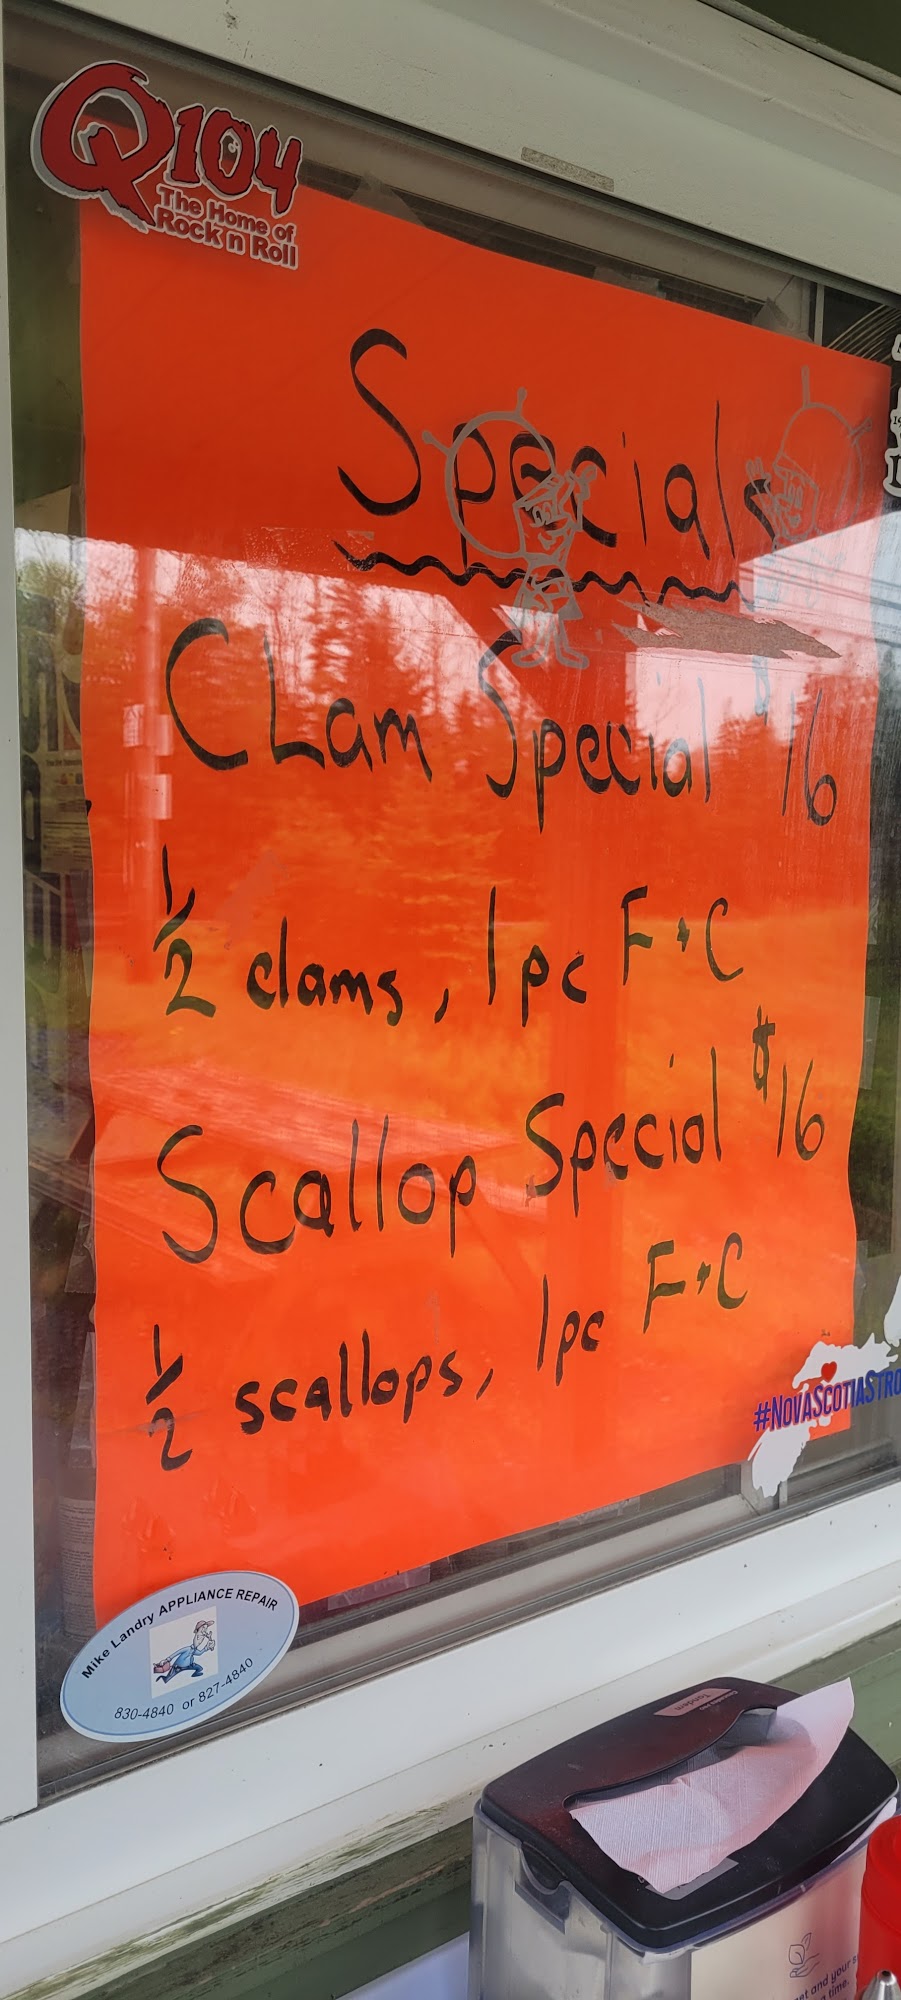 Q104
The Home of
Rock n Roll
Specials
CLam Special $16
1/2 clams, 1pc F+C
Scallop Special $16
1/2 scallops, 1pc F+C
#NOVASCOTIASTRO
Mike Landry APPLIANCE REPAIR
830-4840 or 827-4840
Tandem